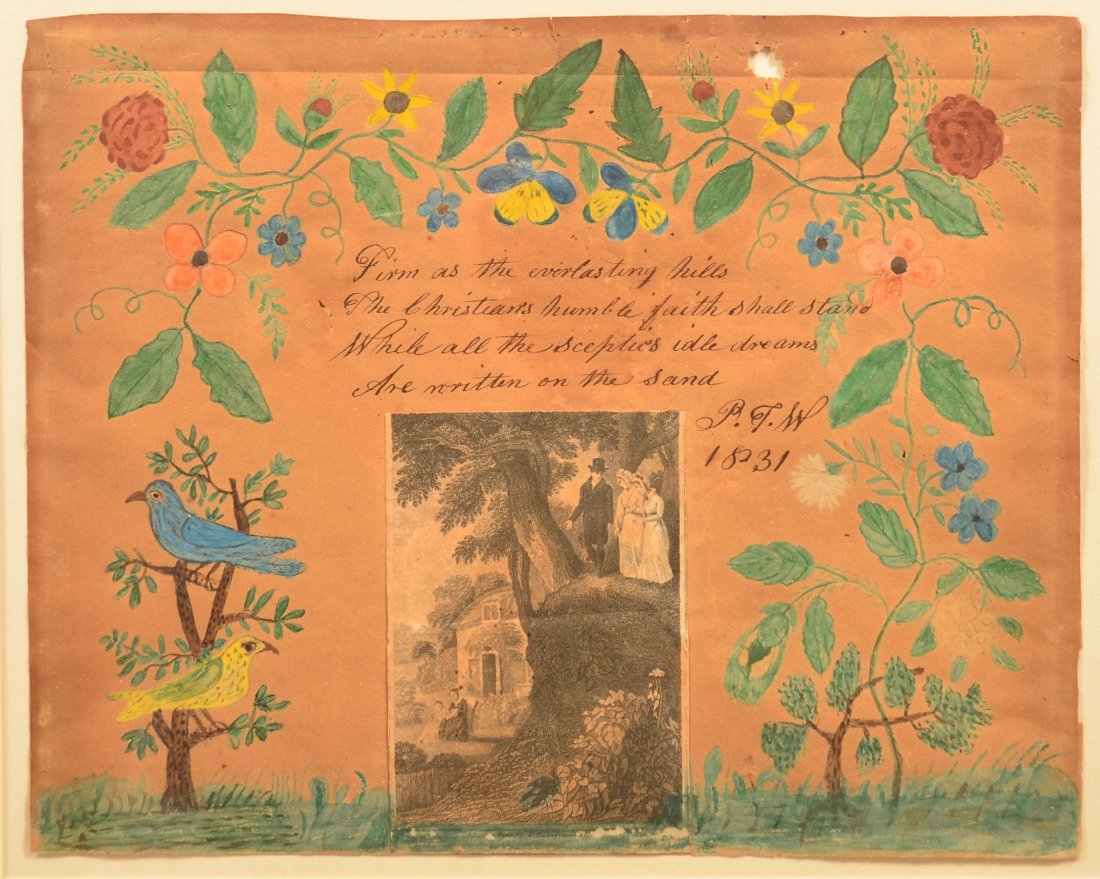 Firm as the everlasting hills
The Christians humble faith shall stand
While all the sceptic's idle dreams
Are written on the sand
P. T. W
1831